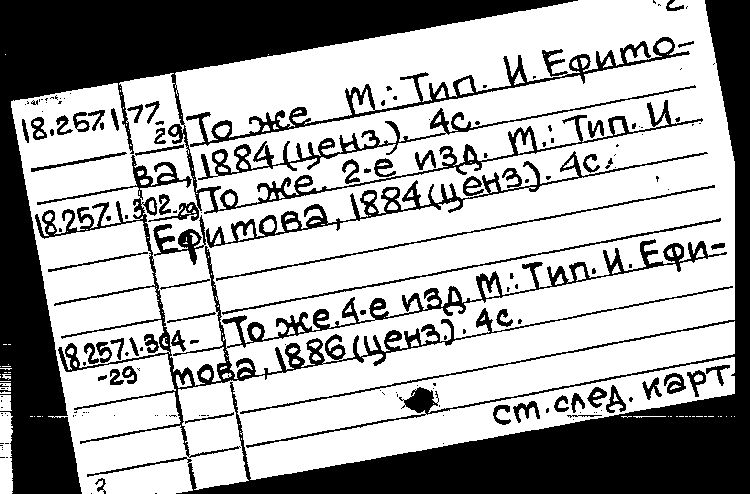 2
18.257.1.77- То же М.: Тип. И. Ефимо-
29 ва, 1884 (ценз.). 4с.
18.257.1.302-29 То же. 2-е изд. М.: Тип. И.
Ефимова, 1884 (ценз.). 4с.
18.257.1.304- То же. 4-е изд. М.: Тип. И. Ефи-
-29 мова, 1886 (ценз.). 4с.
ст. след. карт.
3